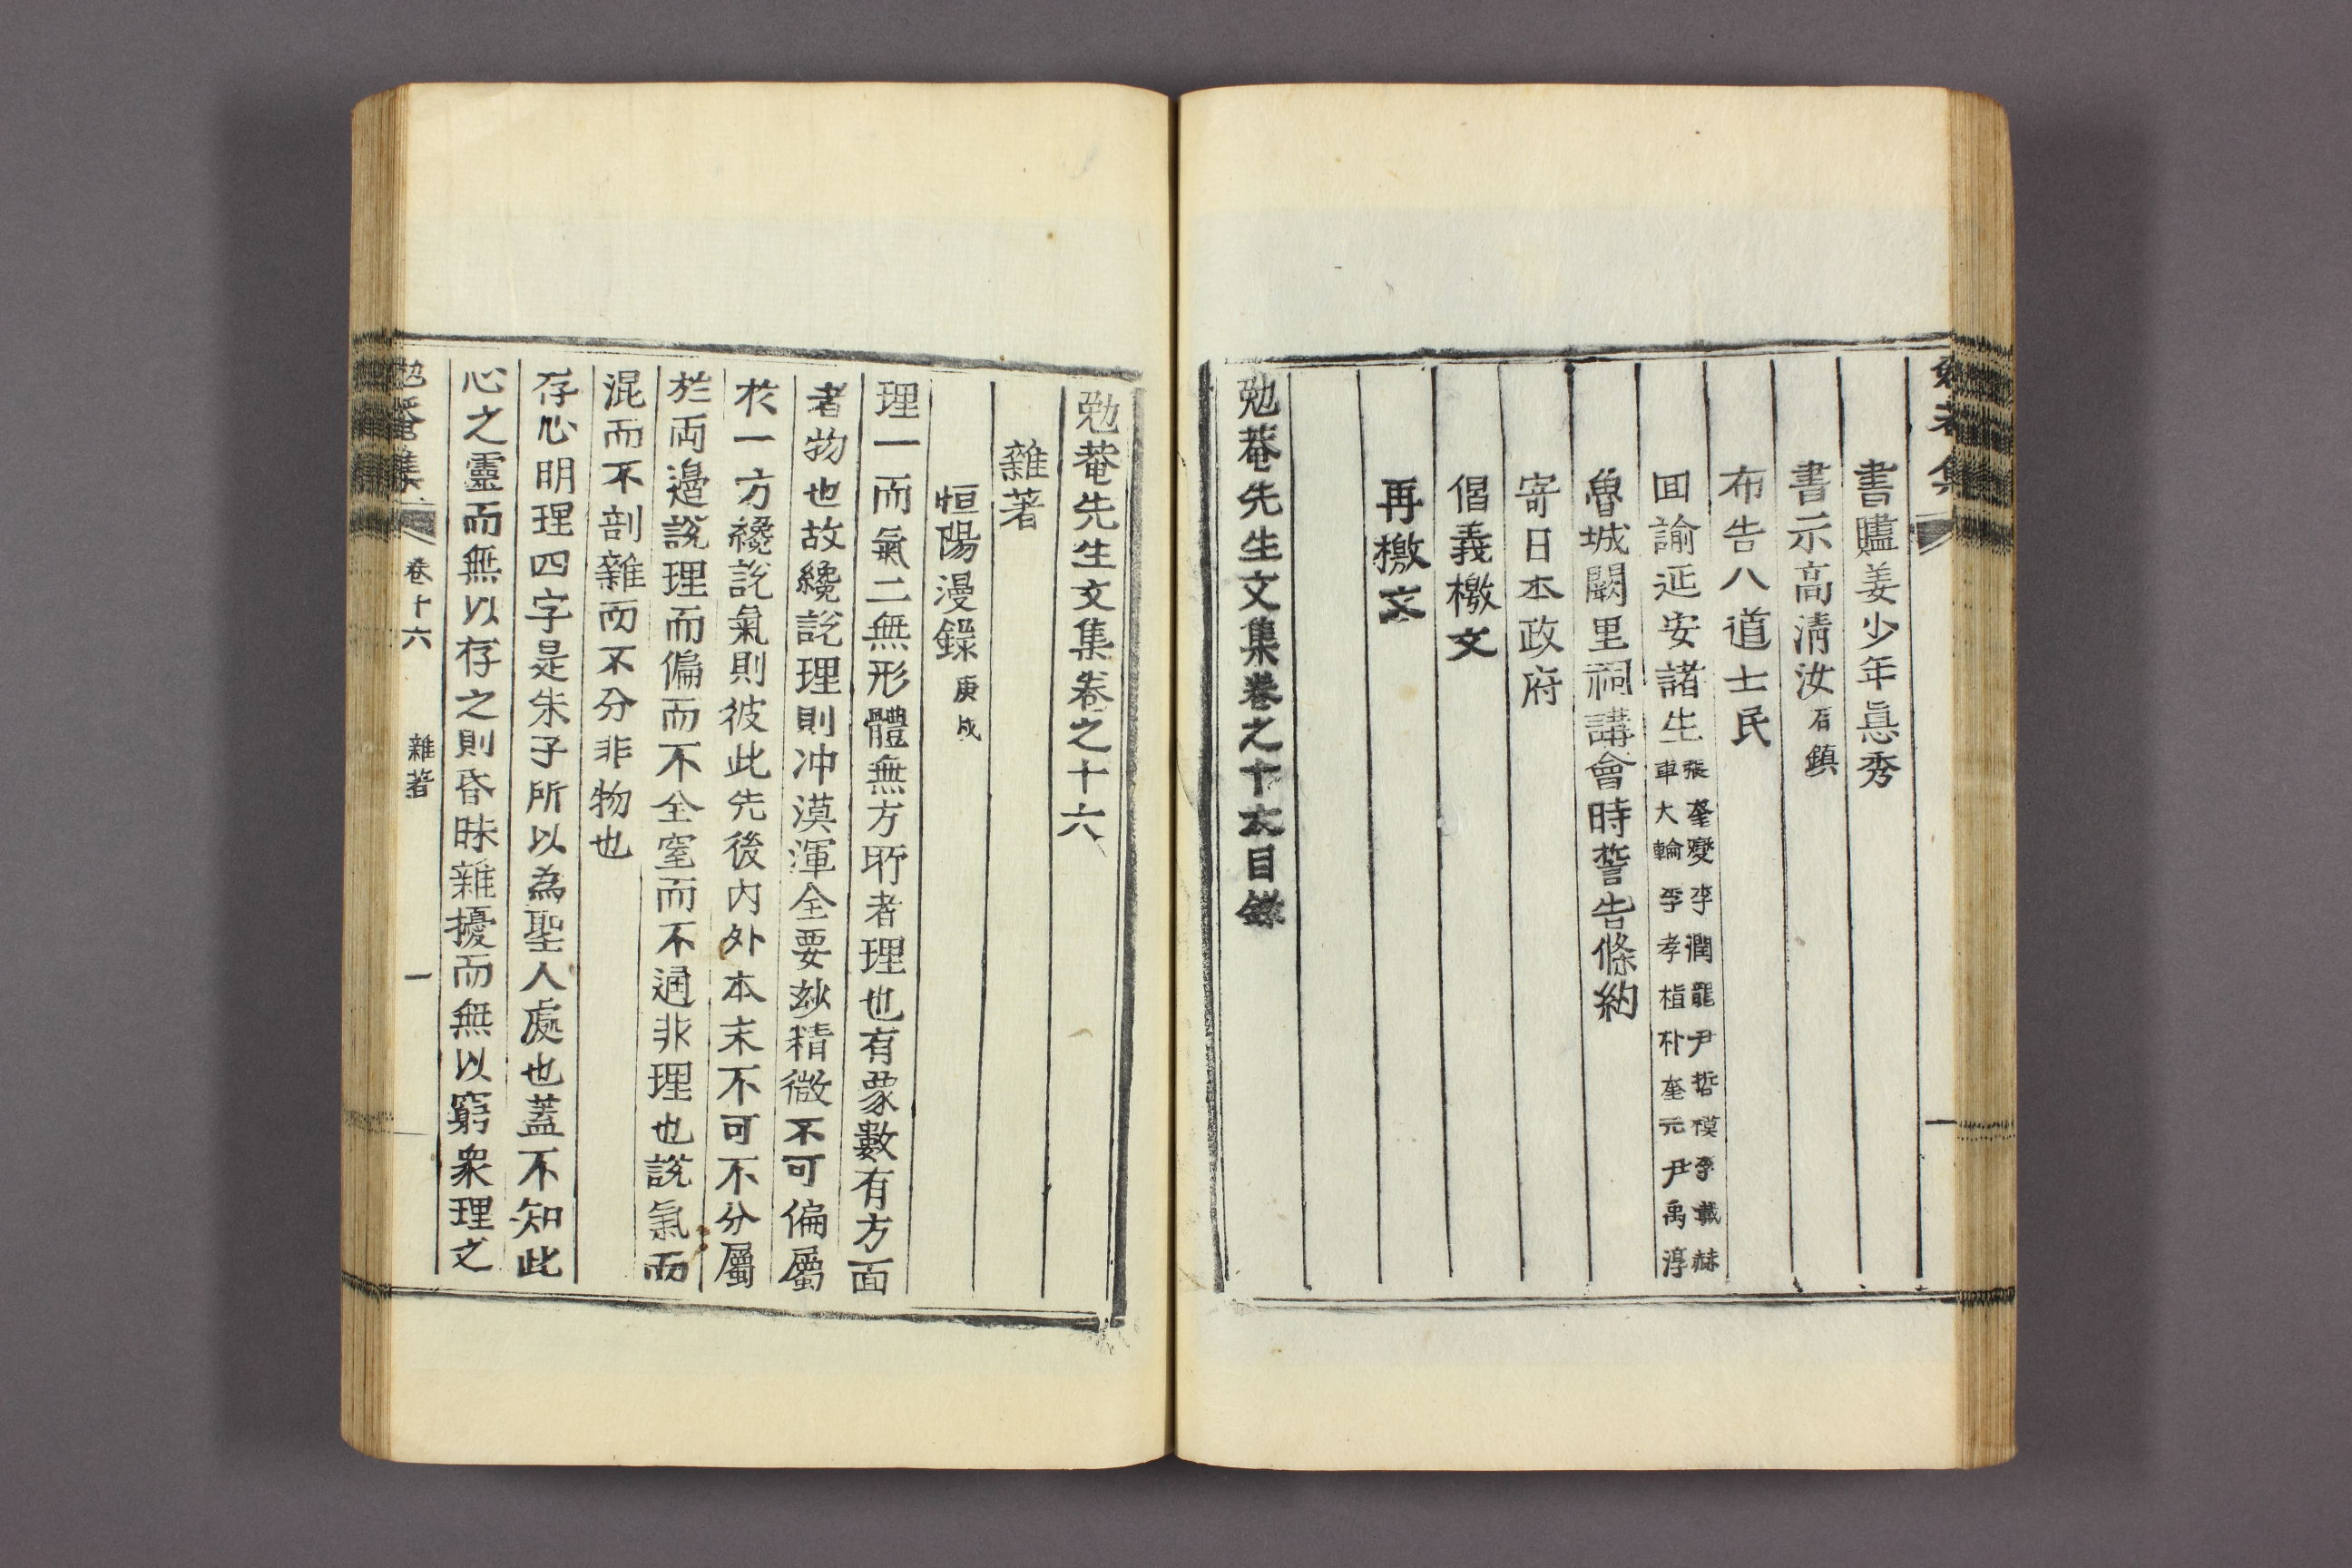 書贐姜少年悳秀
書示高淸汝石鎭
布告八道士民
回諭延安諸生張奎燮李潤龍尹哲模李載赫
車大輪李孝植朴奎元尹禹淳
魯城闕里祠講會時誓告條約
寄日本政府
倡義檄文
再檄文
勉菴先生文集卷之十六目錄
勉菴先生文集卷之十六
雜著
恒陽漫錄庚戌
理一而氣二無形體無方所者理也有象數有方面
者物也故纔說理則冲漠渾全要玅精微不可偏屬
於一方纔說氣則彼此先後內外本末不可不分屬
於兩邊說理而偏而不全窒而不通非理也說氣而
混而不剖雜而不分非物也
存心明理四字是朱子所以為聖人處也蓋不知此
心之靈而無以存之則昏昧雜擾而無以窮衆理之
勉菴集 卷十六 雜著 一